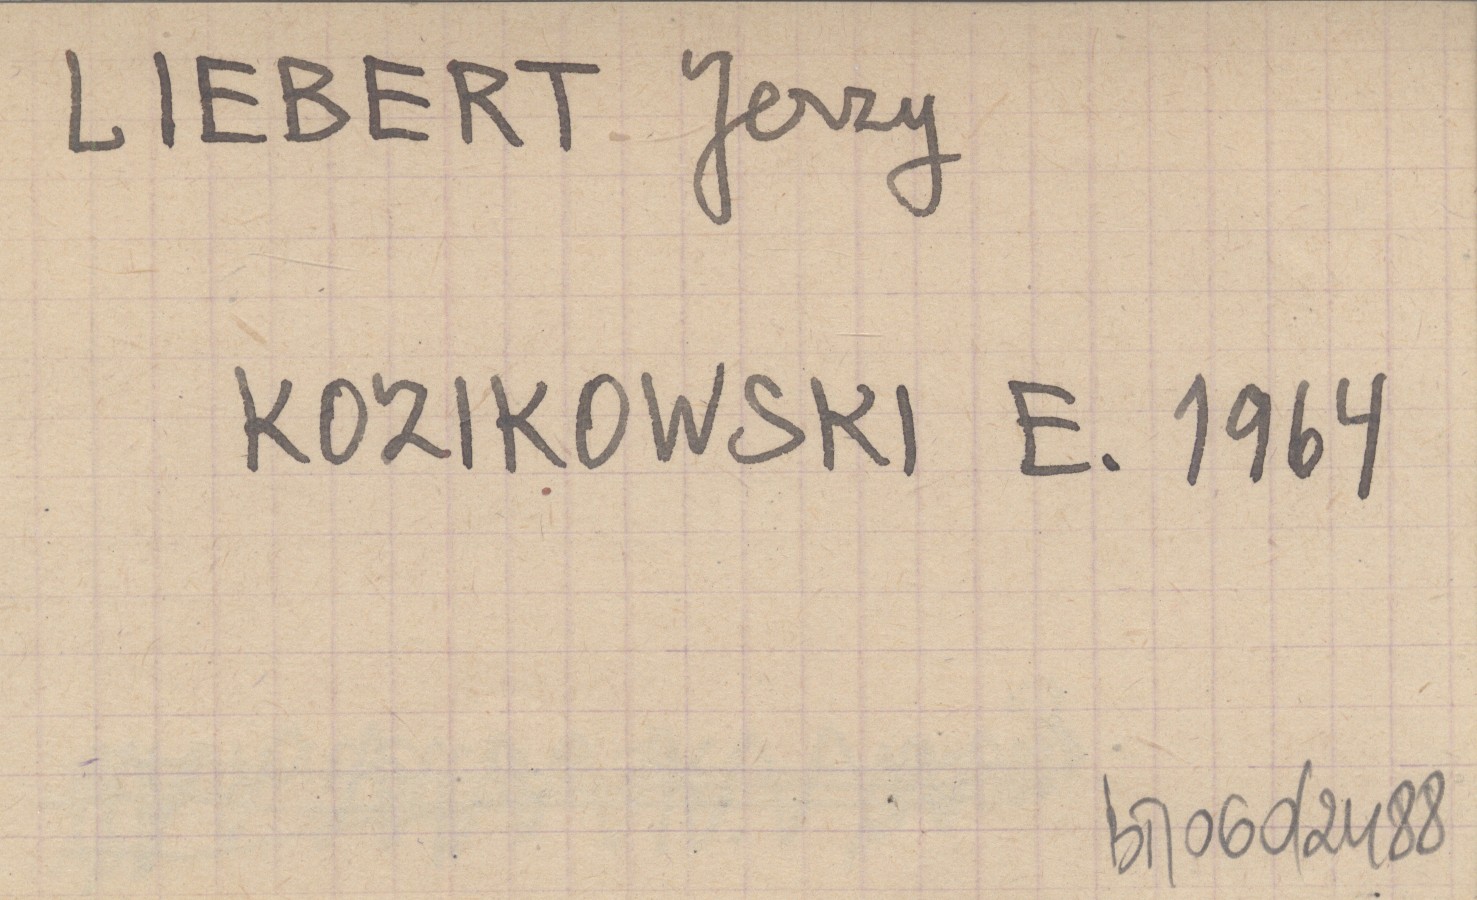 LIEBERT Jerzy
KOZIKOWSKI E. 1964